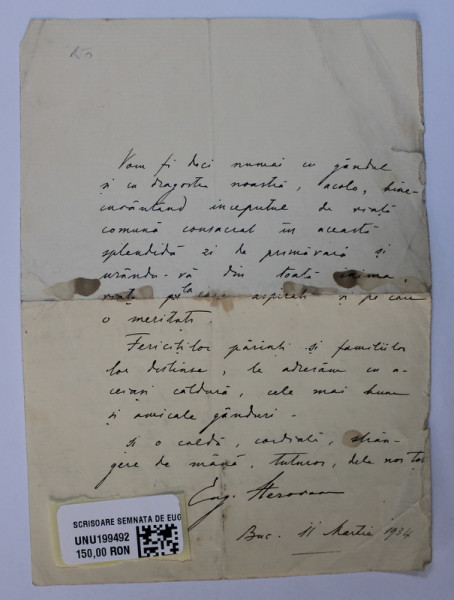 Vom fi deci numai cu gândul
și cu dragostea noastră, acolo, bine-
cuvântând începutul de viață
comună consacrat în această
splendidă zi de primăvară și
urându-vă din toată inima,
viața la care aspirați și pe care
o meritați.
Fericiților părinți și familiilor
lor distinse, le adresăm cu a-
ceiași căldură, cele mai bune
și amicale gânduri.
Și o caldă, cordială, strân-
gere de mână, tuturor, dela noi toți
Eug.
Buc. 11 Martie 1934
SCRISOARE SEMNATA DE EUG
UNU199492
150,00 RON